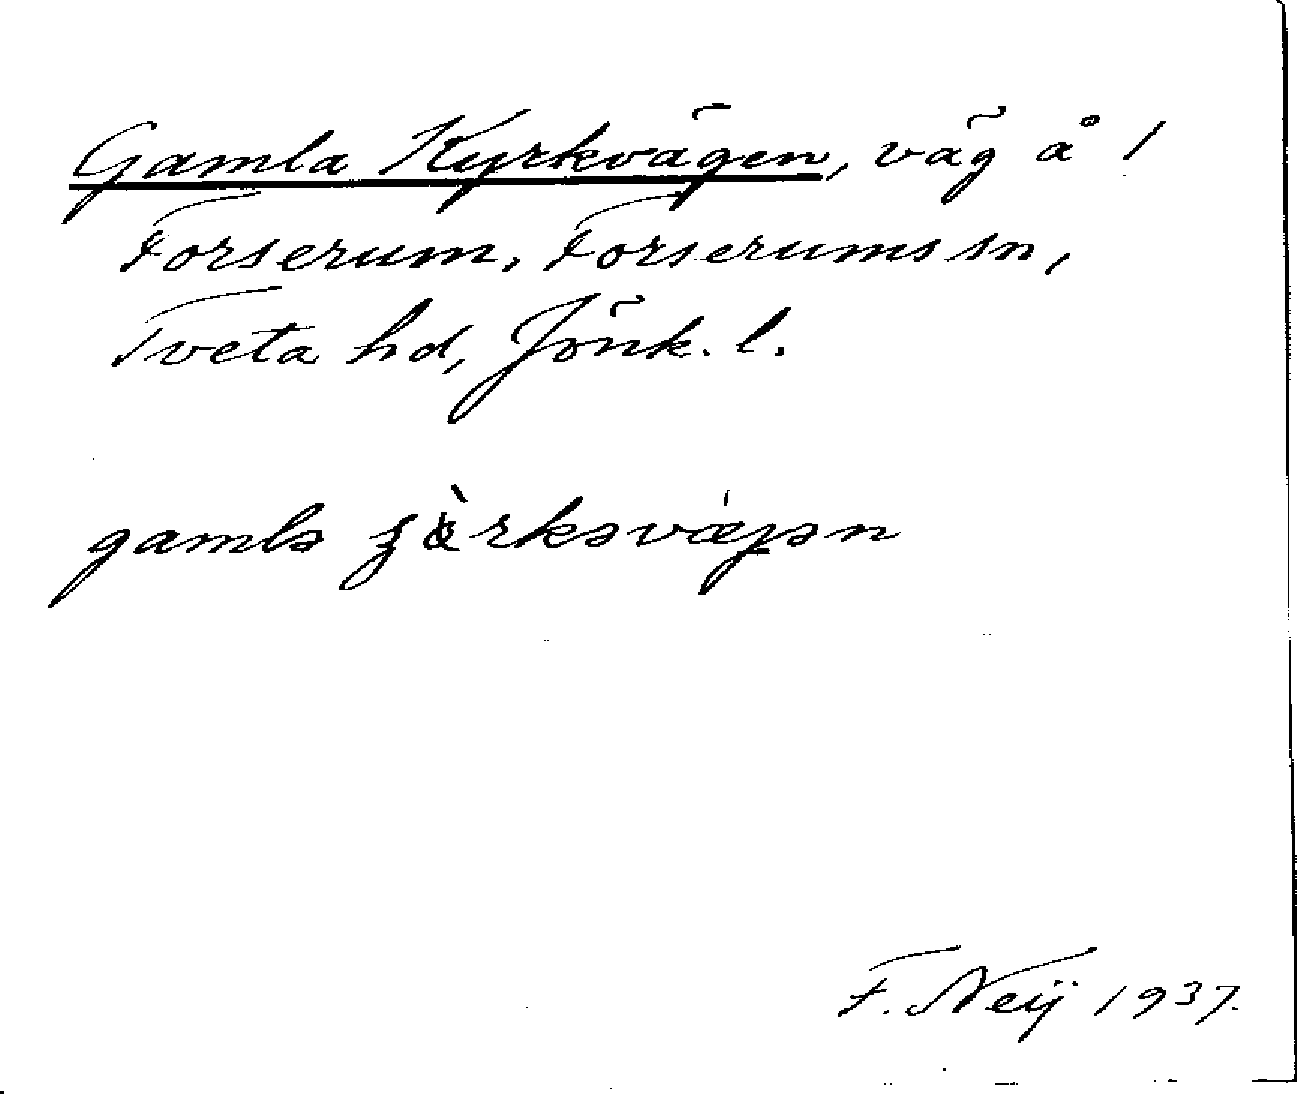 Gamla Kyrkvägen, väg å 1
Forserum, Forserums sn,
Tveta hd, Jönk. l.
gamlə
F. Neij 1937.